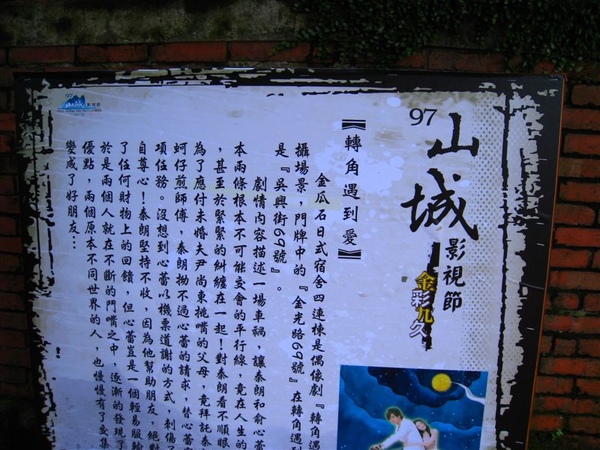 97
山城
影視節
金彩九久
【轉角遇到愛】
金瓜石日式宿舍四連棟是偶像劇『轉角遇
攝場景，門牌中的『金光路69號』在轉角遇到
是『吳興街69號』。
劇情內容描述一場車禍，讓秦朗和俞心蕾
本兩條根本不可能交會的平行線，竟在人生的
，甚至於緊緊的糾纏在一起！對秦朗看不順眼
為了應付未婚夫尹尚東挑嘴的父母，竟拜託秦
蚵仔煎師傅，秦朗拗不過心蕾的請求，替心蕾
項任務。沒想到心蕾以機票道謝的方式，刺傷
自尊心！秦朗堅持不收，因為他幫助朋友，絕對
了任何財物上的回饋，但心蕾豈是一個輕易服輸
於是兩個人就在不斷的鬥嘴之中，逐漸的發現了
優點，兩個原本不同世界的人，也慢慢有了交集
變成了好朋友…